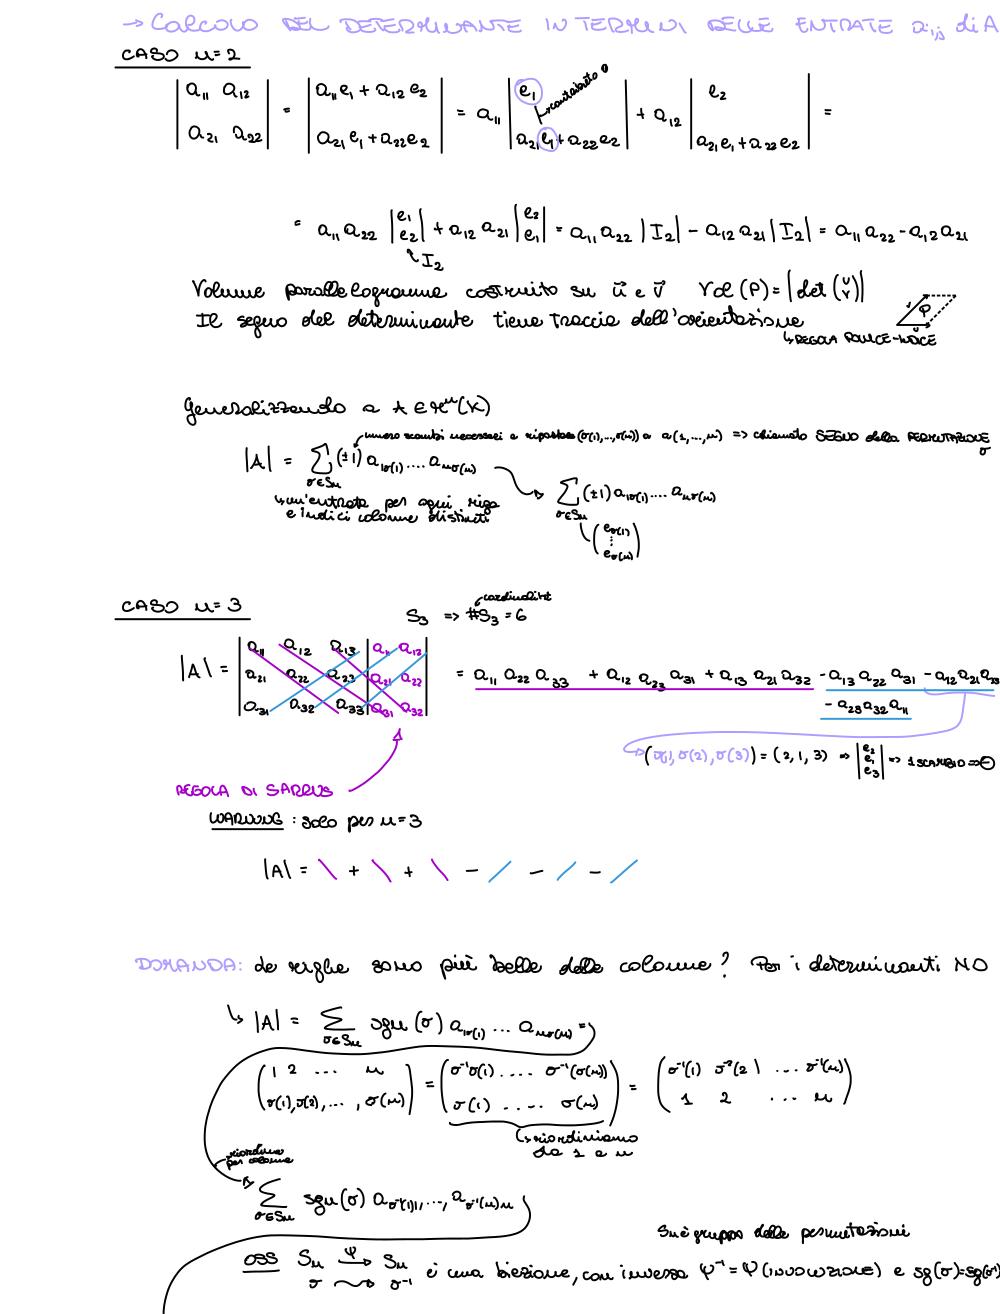 → CALCOLO DEL DETERMINANTE IN TERMINI DELLE ENTRATE a_{i,j} di A
CASO n=2
|a₁₁ a₁₂; a₂₁ a₂₂| = |a₁₁e₁ + a₁₂e₂; a₂₁e₁ + a₂₂e₂| = a₁₁ |e₁; a₂₁e₁ + a₂₂e₂| + a₁₂ |e₂; a₂₁e₁ + a₂₂e₂| =
contributo 0
= a₁₁a₂₂ |e₁; e₂| + a₁₂a₂₁ |e₂; e₁| = a₁₁a₂₂ |I₂| - a₁₂a₂₁ |I₂| = a₁₁a₂₂ - a₁₂a₂₁
I₂
Volume parallelogramma costruito su u e v Vol (P) = |det (u; v)|
Il segno del determinante tiene traccia dell'orientazione
↳ REGOLA POLLICE-INDICE
v P u
Generalizzando a A ∈ Mⁿ(K)
numero scambi necessari a riportare (σ(1),...,σ(n)) a (1,...,n) => chiamato SEGNO della PERMUTAZIONE σ
|A| = ∑_{σ∈Sₙ} (±1) a_{1σ(1)} .... a_{nσ(n)}
∑_{σ∈Sₙ} (±1) a_{1σ(1)} .... a_{nσ(n)}
↳ un'entrata per ogni riga
e indici colonne distinti
(e_{σ(1)}; ⋮; e_{σ(n)})
CASO n=3
S₃ => #S₃ = 6
cardinalità
|A| = |a₁₁ a₁₂ a₁₃ | a₁₁ a₁₂; a₂₁ a₂₂ a₂₃ | a₂₁ a₂₂; a₃₁ a₃₂ a₃₃ | a₃₁ a₃₂| = a₁₁a₂₂a₃₃ + a₁₂a₂₃a₃₁ + a₁₃a₂₁a₃₂ - a₁₃a₂₂a₃₁ - a₁₂a₂₁a₃₃
- a₂₃a₃₂a₁₁
(σ(1), σ(2), σ(3)) = (2, 1, 3) => |e₂; e₁; e₃| => 1 SCAMBIO => ⊖
REGOLA DI SARRUS
WARNING : solo per n=3
|A| = \ + \ + \ - / - / - /
DOMANDA: le righe sono più belle delle colonne? Per i determinanti NO
↳ |A| = ∑_{σ∈Sₙ} sgn (σ) a_{1σ(1)} ... a_{nσ(n)} =
(1 2 ... n; σ(1), σ(2), ..., σ(n)) = (σ⁻¹σ(1) .... σ⁻¹(σ(n)); σ(1) .... σ(n)) = (σ⁻¹(1) σ⁻¹(2) ... σ⁻¹(n); 1 2 ... n)
↳ riordiniamo
da 1 a n
riordino
per colonne
∑_{σ∈Sₙ} sgn(σ) a_{σ⁻¹(1)1}, ..., a_{σ⁻¹(n)n}
Sₙ è gruppo delle permutazioni
OSS Sₙ →^φ Sₙ è una biezione, con inversa φ⁻¹ = φ (INVOLUZIONE) e sg(σ)=sg(σ⁻¹)
σ ⟿ σ⁻¹